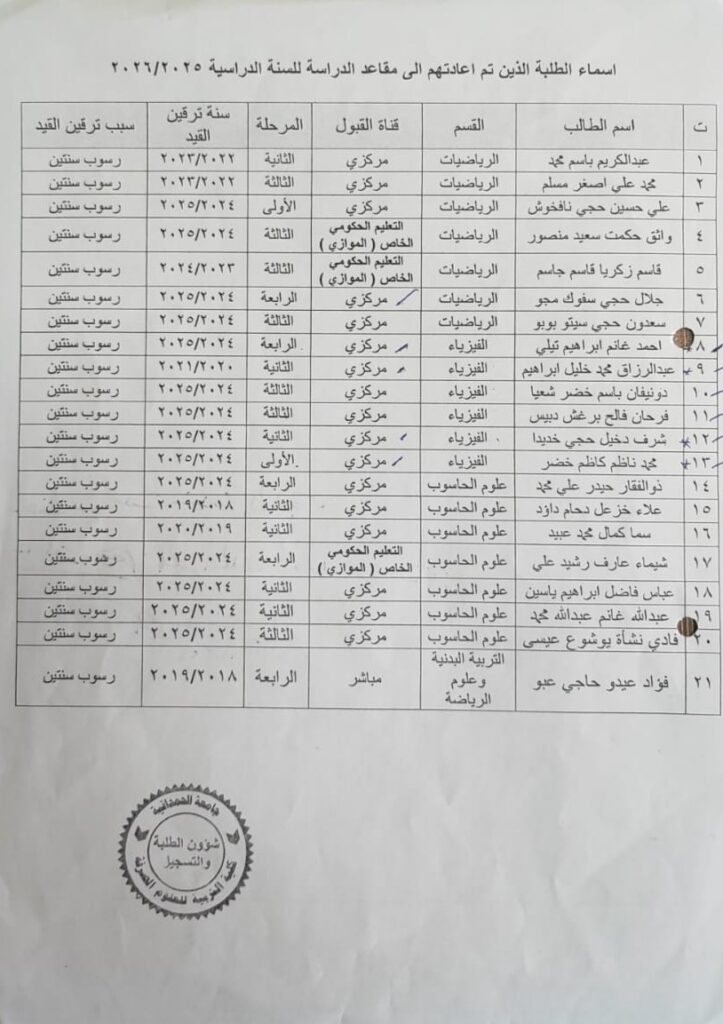 اسماء الطلبة الذين تم اعادتهم الى مقاعد الدراسة للسنة الدراسية ٢٠٢٦/٢٠٢٥
ت اسم الطالب القسم قناة القبول المرحلة سنة ترقين القيد سبب ترقين القيد
١ عبدالكريم باسم محمد الرياضيات مركزي الثانية ٢٠٢٣/٢٠٢٢ رسوب سنتين
٢ محمد علي اصغر مسلم الرياضيات مركزي الثالثة ٢٠٢٣/٢٠٢٢ رسوب سنتين
٣ علي حسين حجي نافخوش الرياضيات مركزي الأولى ٢٠٢٥/٢٠٢٤ رسوب سنتين
٤ واثق حكمت سعيد منصور الرياضيات التعليم الحكومي الخاص ( الموازي ) الثالثة ٢٠٢٥/٢٠٢٤ رسوب سنتين
٥ قاسم زكريا قاسم جاسم الرياضيات التعليم الحكومي الخاص ( الموازي ) الثالثة ٢٠٢٤/٢٠٢٣ رسوب سنتين
٦ جلال حجي سفوك مجو الرياضيات مركزي الرابعة ٢٠٢٥/٢٠٢٤ رسوب سنتين
٧ سعدون حجي سيتو بوبو الرياضيات مركزي الثالثة ٢٠٢٥/٢٠٢٤ رسوب سنتين
٨ احمد غانم ابراهيم تيلي الفيزياء مركزي الرابعة ٢٠٢٥/٢٠٢٤ رسوب سنتين
٩ عبدالرزاق محمد خليل ابراهيم الفيزياء مركزي الثانية ٢٠٢١/٢٠٢٠ رسوب سنتين
١٠ دونيفان باسم خضر شعيا الفيزياء مركزي الثالثة ٢٠٢٥/٢٠٢٤ رسوب سنتين
١١ فرحان فالح برغش دبيس الفيزياء مركزي الثالثة ٢٠٢٥/٢٠٢٤ رسوب سنتين
١٢ شرف دخيل حجي خديدا الفيزياء مركزي الثانية ٢٠٢٥/٢٠٢٤ رسوب سنتين
١٣ محمد ناظم كاظم خضر الفيزياء مركزي الأولى ٢٠٢٥/٢٠٢٤ رسوب سنتين
١٤ ذوالفقار حيدر علي محمد علوم الحاسوب مركزي الرابعة ٢٠٢٥/٢٠٢٤ رسوب سنتين
١٥ علاء خزعل دحام داؤد علوم الحاسوب مركزي الثانية ٢٠١٩/٢٠١٨ رسوب سنتين
١٦ سما كمال محمد عبيد علوم الحاسوب مركزي الثانية ٢٠٢٠/٢٠١٩ رسوب سنتين
١٧ شيماء عارف رشيد علي علوم الحاسوب التعليم الحكومي الخاص ( الموازي ) الرابعة ٢٠٢٥/٢٠٢٤ رسوب سنتين
١٨ عباس فاضل ابراهيم ياسين علوم الحاسوب مركزي الثانية ٢٠٢٥/٢٠٢٤ رسوب سنتين
١٩ عبدالله غانم عبدالله محمد علوم الحاسوب مركزي الثانية ٢٠٢٥/٢٠٢٤ رسوب سنتين
٢٠ فادي نشأة يوشوع عيسى علوم الحاسوب مركزي الثالثة ٢٠٢٥/٢٠٢٤ رسوب سنتين
٢١ فؤاد عيدو حاجي عبو التربية البدنية وعلوم الرياضة مباشر الرابعة ٢٠١٩/٢٠١٨ رسوب سنتين
جامعة الحمدانية
شؤون الطلبة
والتسجيل
كلية التربية للعلوم الصرفة